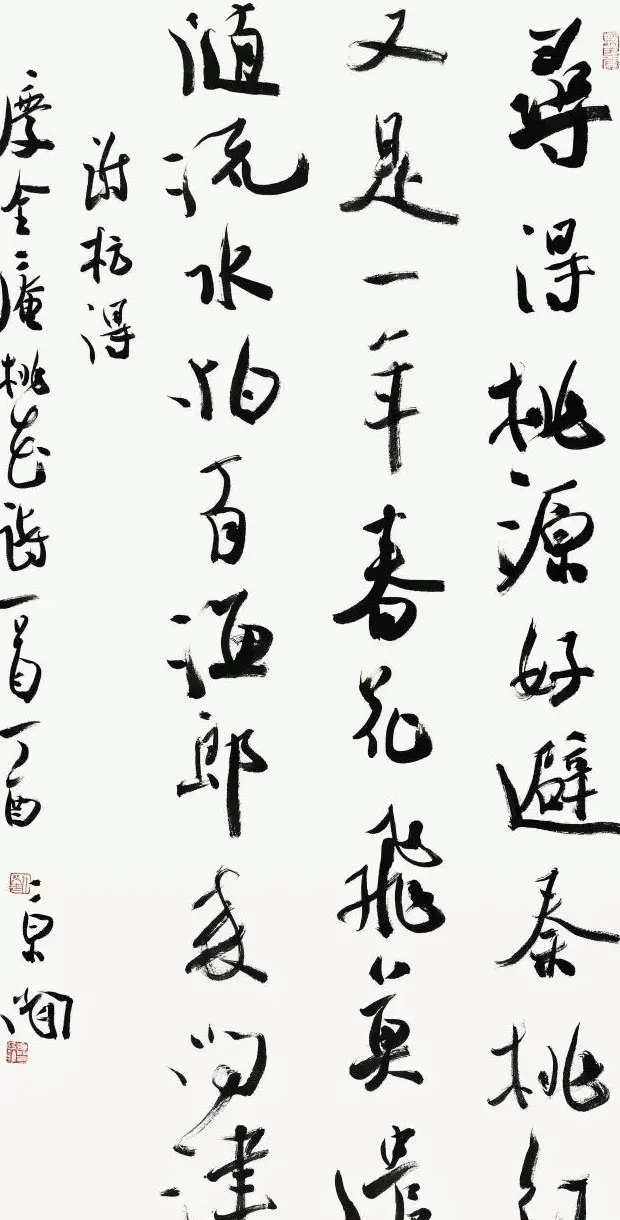 尋得桃源好避秦桃红
又是一年春花飛莫遣
随流水怕有漁郎来问津
谢枋得
慶全庵桃花詩一首丁酉